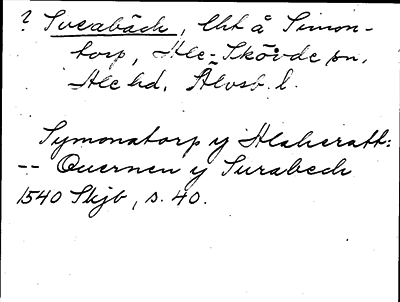 ? Sveabäck, lht å Simon-
torp, Ale-Skövde sn,
Ale hd. Älvsb. l.
Symonatorp y Alaheratt:
-- Quernen y Surabeck
1540 Skjb, s. 40.